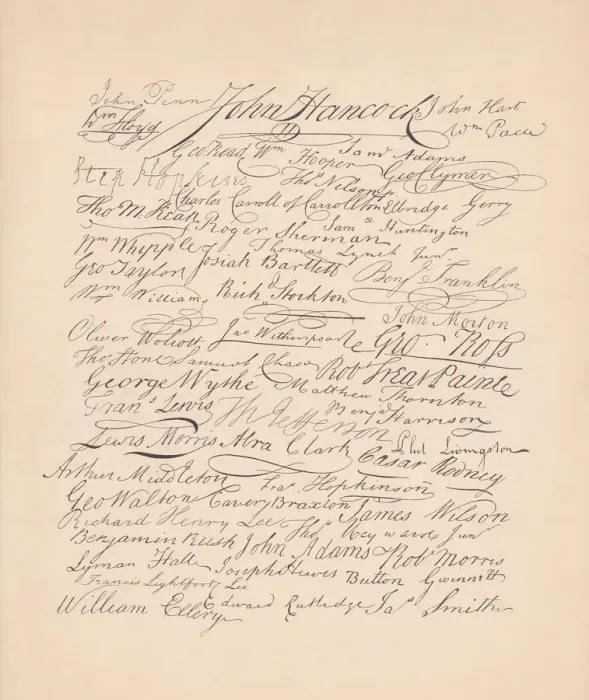 John Penn John Hancock John Hart
Wm Floyd Wm Paca
Geo. Read Wm Hooper Saml Adams
Step Hopkins Thos Nelson jr Geo Clymer
Charles Carroll of Carrollton Elbridge Gerry
Tho M. Kean Roger Sherman Saml Huntington
Wm Whipple Josiah Bartlett Thomas Lynch Junr.
Geo Taylor Benj Franklin
Wm Williams Richd Stockton
John Morton
Oliver Wolcott Jno Witherspoon Geo. Ross
Thos Stone Samuel Chase Robt Treat Paine
George Wythe Matthew Thornton
Frans Lewis Th Jefferson Benj Harrison
Lewis Morris Abra Clark Phil Livingston
Cæsar Rodney
Arthur Middleton Fras Hopkinson
Geo Walton Carter Braxton James Wilson
Richard Henry Lee Thos Heyward Junr
Benjamin Rush John Adams Robt Morris
Lyman Hall Joseph Hewes Button Gwinnett
Francis Lightfoot Lee
William Ellery Edward Rutledge Jas Smith